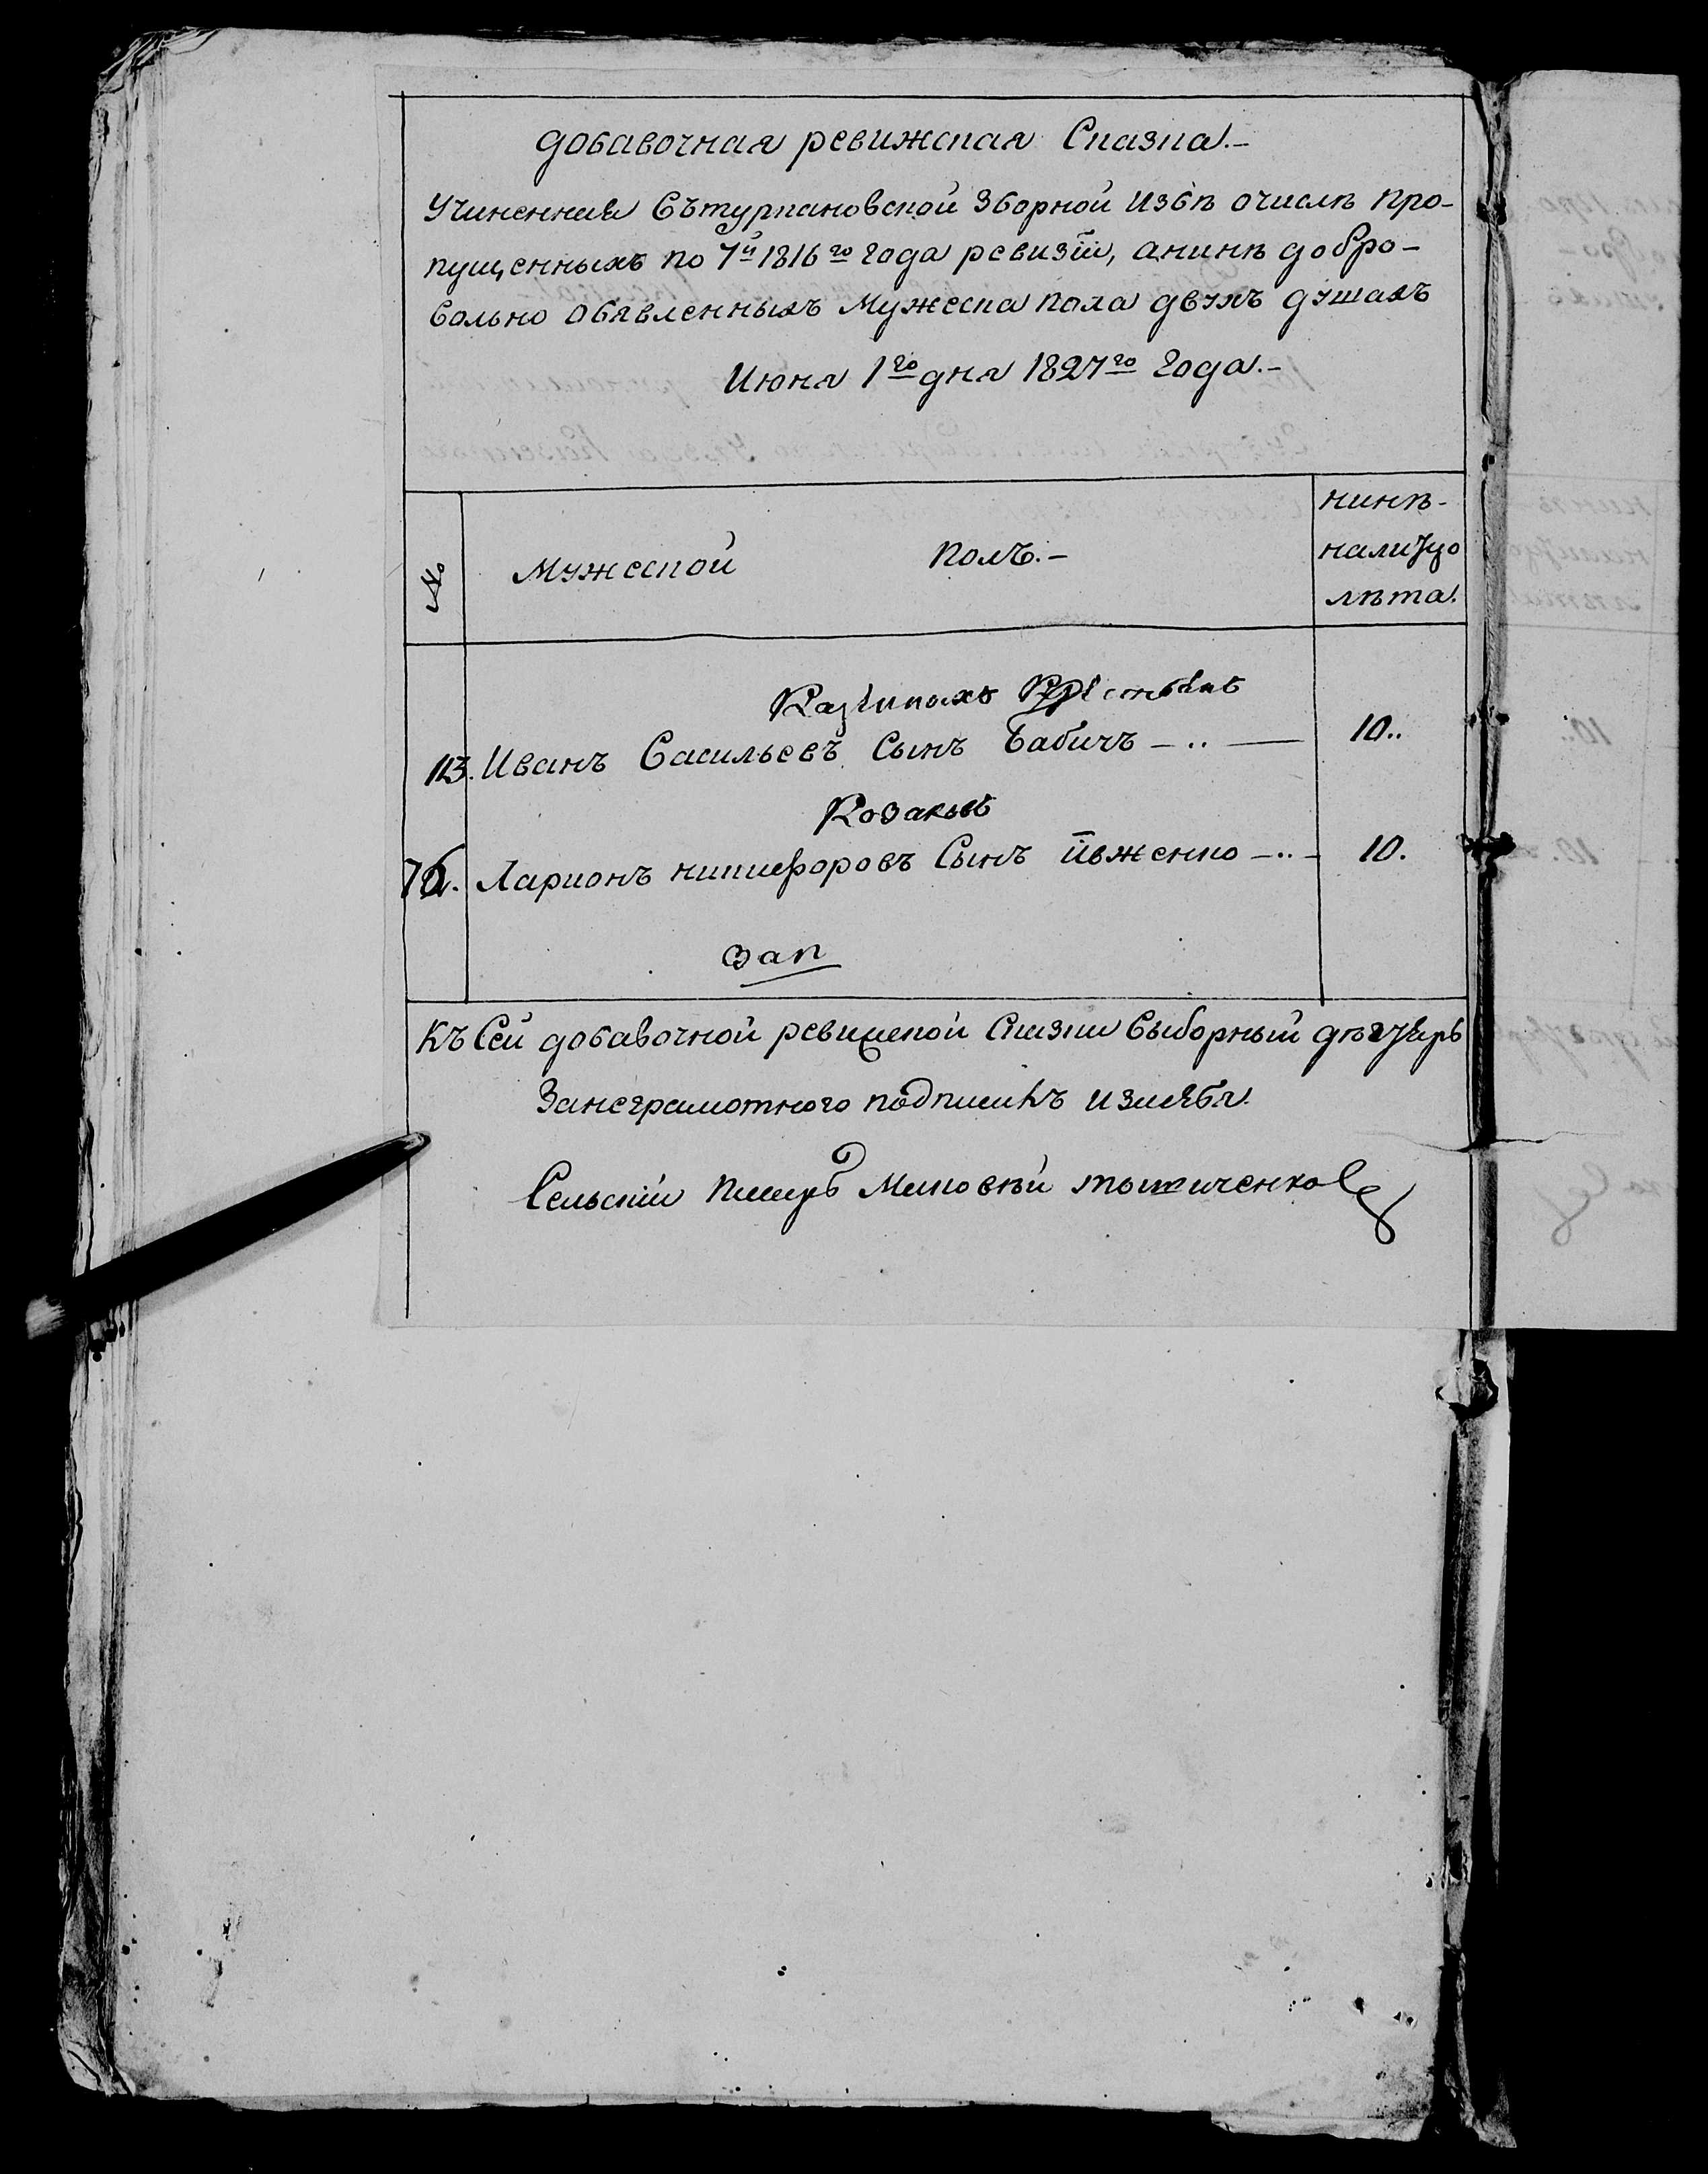 добавочная ревижская Сказка.-
Учиненная Въ туркановской Зборной Избѣ о числѣ про-
пущенныхъ по 7й 1816го года ревизїи, а нинѣ добро-
вольно обявленныхъ Мужеска пола двухъ душахъ
Июня 1го дня 1827го года.-
№ Мужеской полъ.-
нинѣ-
на лицо
лѣта.
10..
113. Иванъ Васильевъ Сынъ Бабичъ
Козаковъ
Ларионъ никифоровъ Сынъ Ївженко 10.
Къ Сей добавочной ревижской Сказки Выборный
За неграмотного подписикъ и Себя
Сельский Писарь